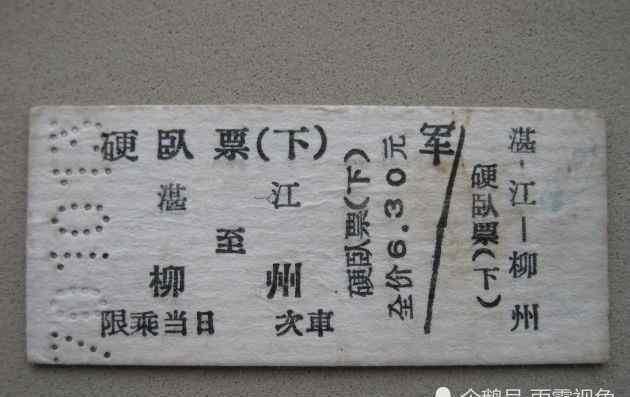 硬臥票(下)
湛 江
至
柳 州
限乘当日 次車
硬臥票(下)
全价6.30元
军
硬臥票(下)
湛江—柳州
企鹅号 雨霖视角